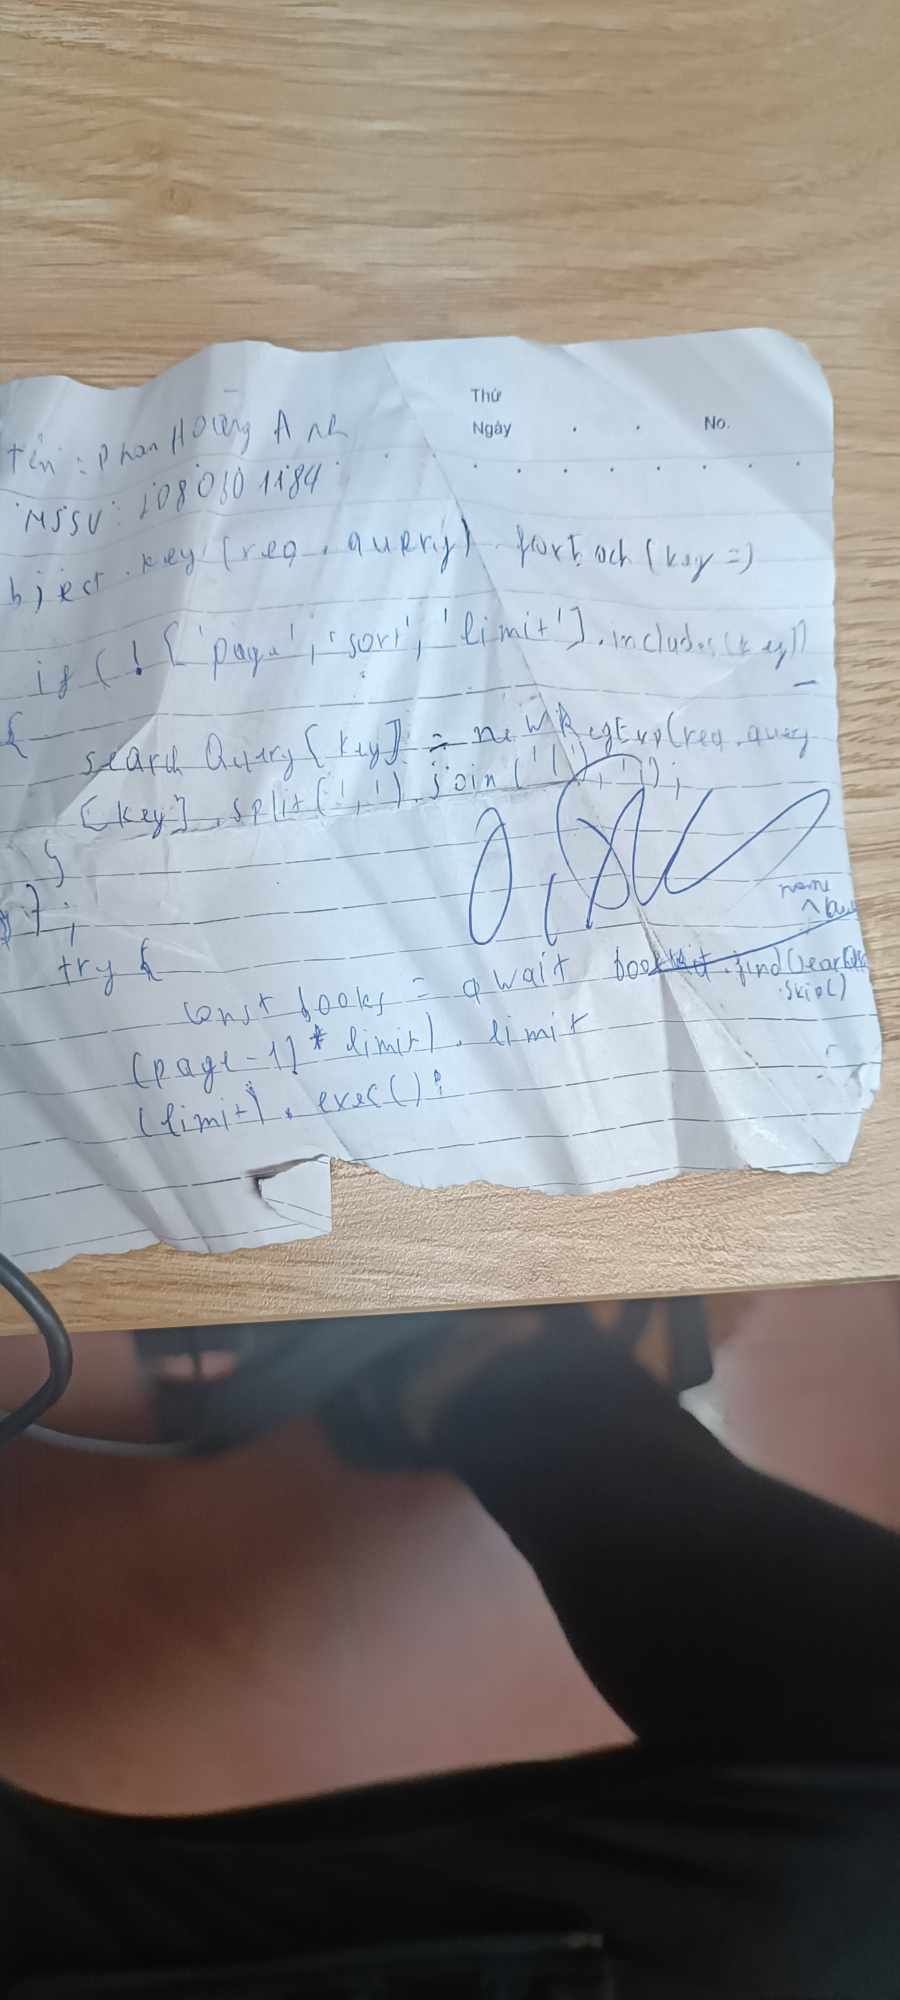 Thứ
Ngày No.
tên : Phan Hoàng Anh
MSSV: 1080301184
bject.key(req.query).forEach(key =)
if (! ['page', 'sort', 'limit'].includes(key))
{
searchQuery[key] = new RegExp(req.query
[key].split(',').join('|'), 'i');
}
});
try {
name
const books = await .find(
.skip()
(page-1) * limit). limit
(limit). exec();